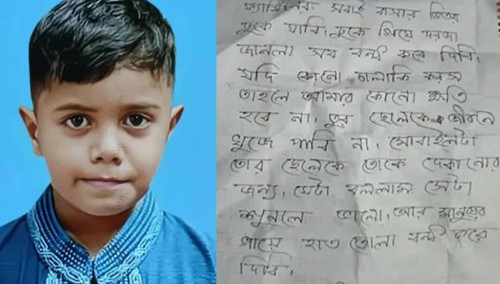 সবাই বাসার ভিতর
ঢুকে যাবি, ঢুকে গিয়ে দরজা
জানালা সব বন্ধ করে দিবি,
যদি কোনো চালাকি করস
তাহলে আমার কোনো ক্ষতি
হবে না, তুর ছেলেকে জীবনে
খুজে পাবি না, মোবাইলটা
তোর ছেলেকে তোকে দেকানোর
জন্য, যেটা বললাম সেটা
শুনলে ভালো, আর মানুষের
গায়ে হাত তোলা বন্ধ করে
দিবি,